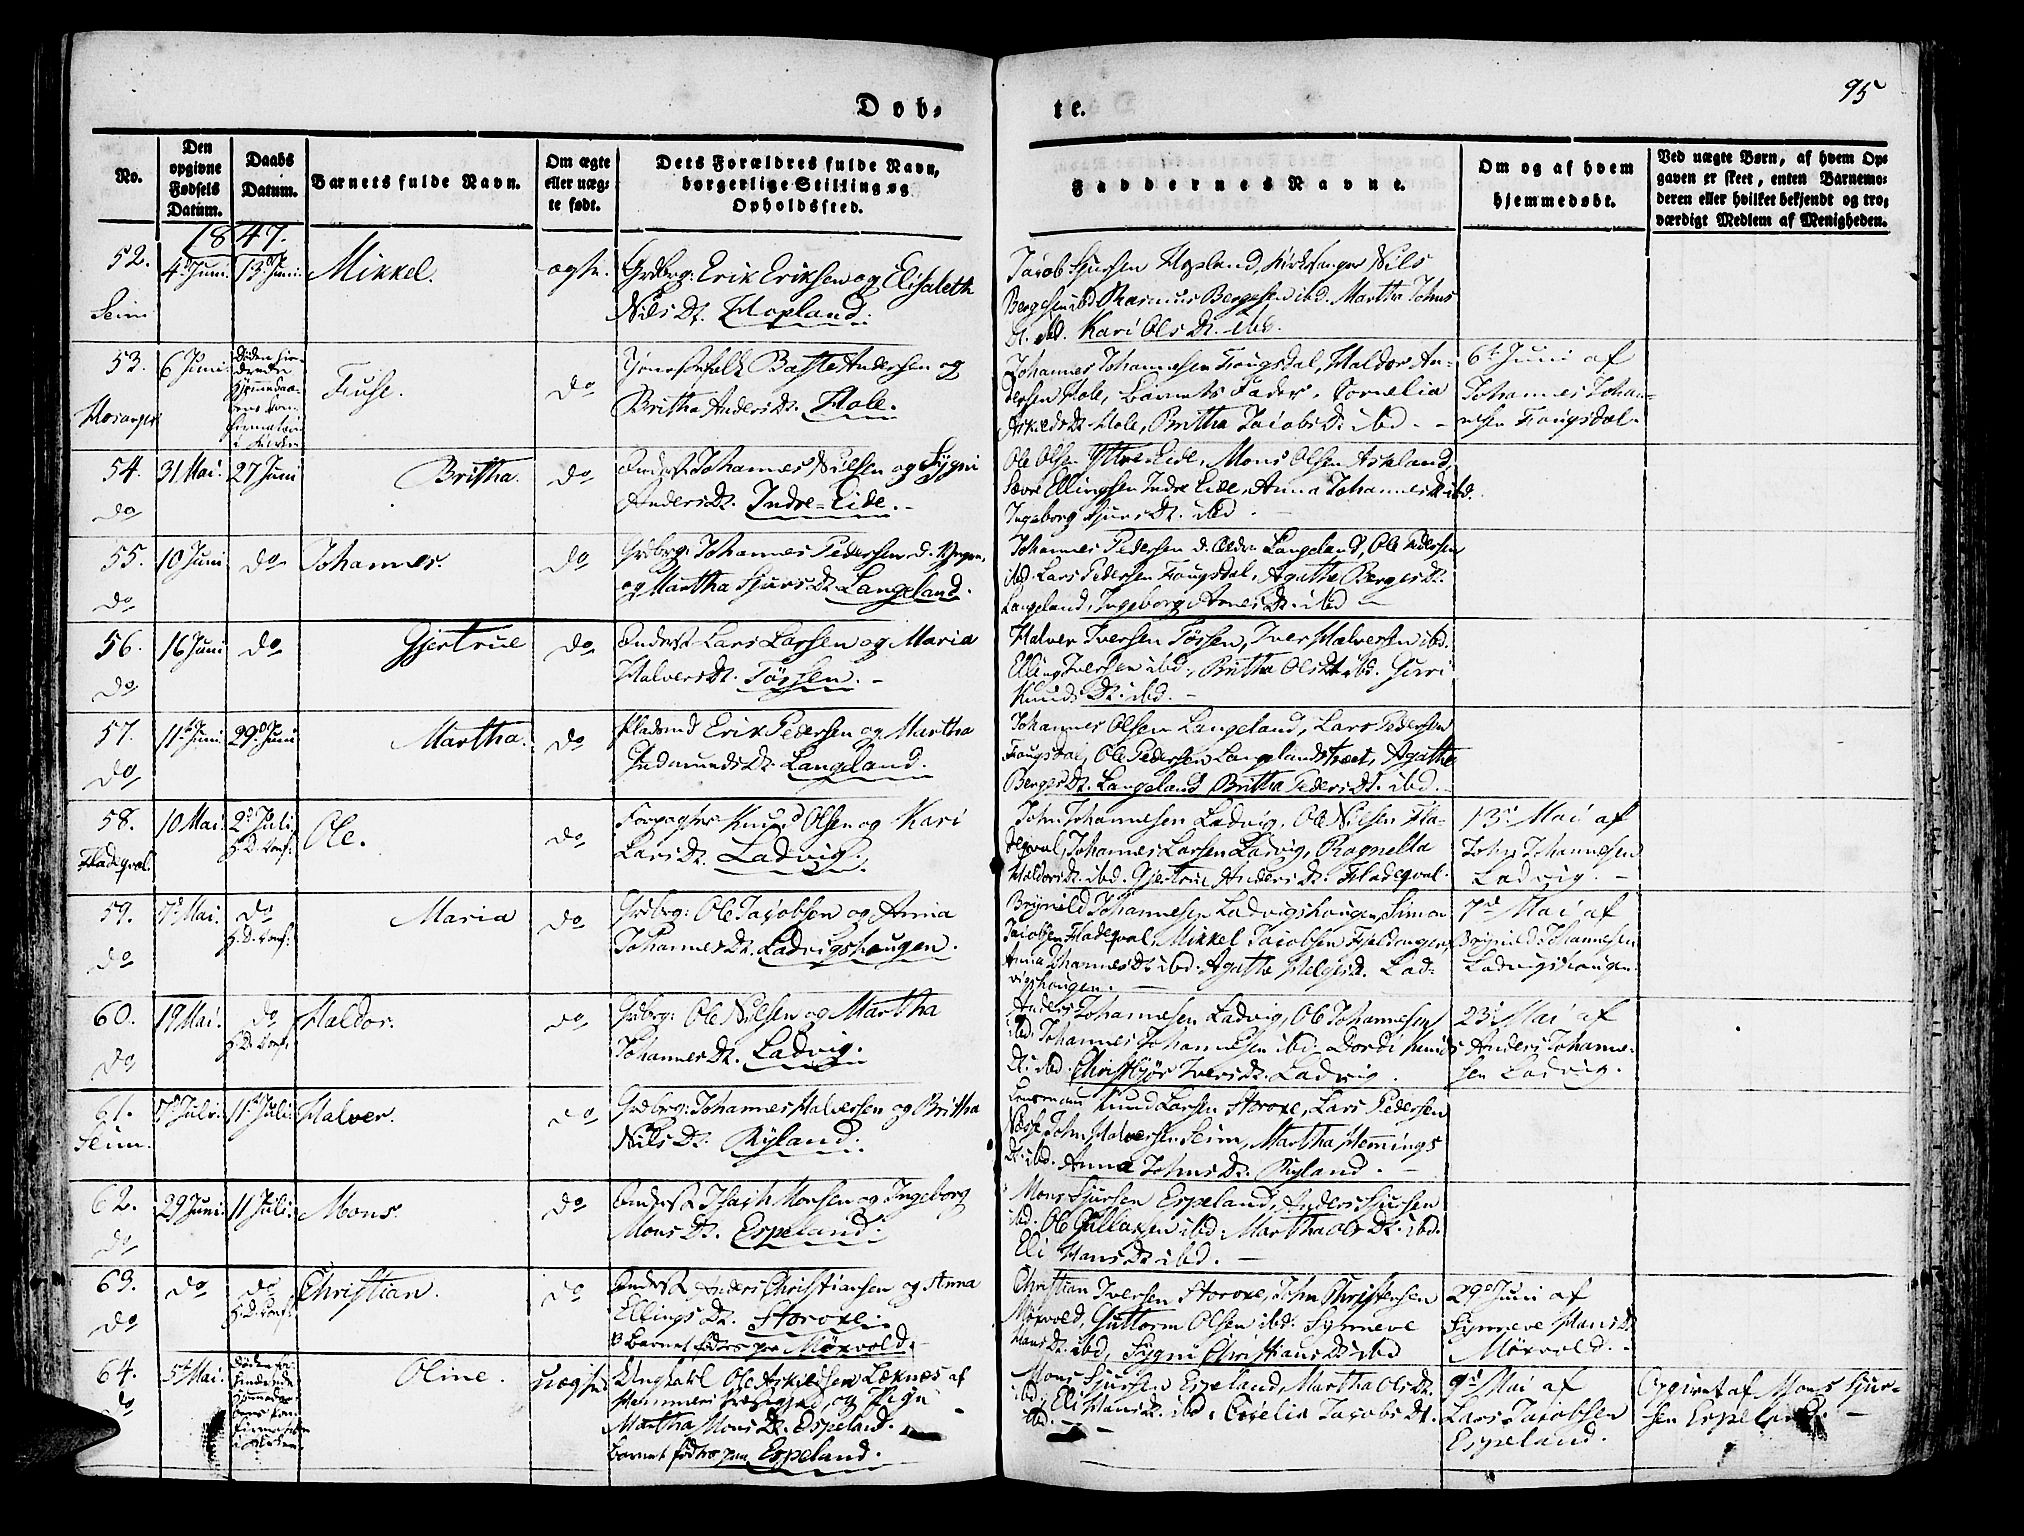 95
Døb-
te.
No.
Den
opgivne
Fødsels
Datum.
Daabs
Datum.
Barnets fulde Navn.
Om ægte
eller uæg-
te født.
Dets Forældres fulde Navn,
borgerlige Stilling og
Opholdssted.
Faddernes Navne.
Om og af hvem
hjemmedøbt.
Ved uægte Børn, af hvem Op-
gaven er skeet, enten Barnemo-
deren eller hvilket bekjendt og tro-
værdigt Medlem af Menigheden.
1847.
52.
Seim
4de Juni.
13de Juni.
Mikkel.
ægte.
Grdbrg: Erik Eriksen og Elisabeth
Nils Dt. Hopland.
Jacob Sjursen Hopland, Kirkesanger Nils
Bergesen ibd. Rasmus Bergesen ibd. Martha Johns
Dt. ibd. Kari Ols Dt. ibd.
53.
Hosanger
6 Juni.
Fuse.
do
Baste Andersen og
Britha Anders Dt. Hole.
Johannes Johannesen Fougsdal, Haldor An-
dersen Hole, Barnets Fader, Cornelia
Askilds Dt. Hole, Britha Jacobs Dt. ibd.
6te Juni af
Johannes Johan-
nesen Fougsdal.
54.
do
31 Mai.
27 Juni
Britha.
do
Johannes Nilsen og Sygni
Anders Dt. Indre-Eide.
Ole Olsen Yttre Eide, Mons Olsen Askeland,
Ellingsen Indre Eide, Anna Johannes Dt. ibd.
Ingeborg Sjurs Dt. ibd.
55.
do
10 Juni
do
Johannes.
do
Grdbrg: Johannes Pedersen d. Yngre,
og Martha Sjurs Dt. Langeland.
Johannes Pedersen d. Ældre Langeland, Ole Pedersen
ibd. Lars Pedersen Fougsdal, Agathe Berges Dt.
Langeland, Ingeborg Arnes Dt. ibd
56.
do
16 Juni
do
Gjertrue
do
Lars Larssen og Maria
Halvers Dt. Tøssen.
Halver Iversen Tøssen, Iver Halversen ibd.
Elling Iversen ibd., Britha Ols Dt. ibd. Guri
Knuds Dt. ibd.
57.
do
11te Juni.
29de Juni
Martha.
do
Pladsmd Erik Pedersen og Martha
Gudmunds Dt. Langeland.
Johannes Olsen Langeland, Lars Pedersen
Fougsdal, Ole Pedersen Langelandstræet, Agathe
Berges Dt. Langeland, Britha Peders Dt. ibd.
58.
Fladeqval.
10 Mai.
2de Juli
H. D. Conf.
Ole.
do
Forpagter Knud Olsen og Kari
Lars Dt. Ladvig.
John Johannesen Ladvig, Ole Nilsen Fla-
deqval, Johannes Larsen Ladvig, Ragnelta
Haldors Dt. ibd. Gjertrue Anders Dt. Fladeqval.
13de Mai af
John Johannesen
Ladvig.
59.
do
7de Mai.
do
H. D. Conf.
Maria
do
Grdbrg: Ole Jacobsen og Anna
Johannes Dt. Ladvigshougen.
Brynild Johannesen Ladvigshougen, Simon
Jacobsen Fladeqval, Mikkel Jacobsen Fjeldangen,
Anna Johannes Dt. ibd. Agathe Helges Dt. Lad-
vigshougen.
7de Mai af
Brynild Johannesen
Ladvigshougen.
60.
do
19 Mai.
do
H. D. Conf.
Haldor.
do
Grdbrg: Ole Nilsen og Martha
Johannes Dt. Ladvig.
Anders Johannesen Ladvig, Ole Johannesen
ibd. Johannes Johannesen ibd. Dordi Knuds
Dt. ibd. Christbjør Ivers Dt. Ladvig.
23de Mai af
Anders Johanne-
sen Ladvig.
61.
Seim.
7de Juli.
11te Juli.
Halver.
do
Grdbrg: Johannes Halversen og Britha
Nils Dt. Ryland.
Lensmand Knud Larsen Storoxe, Lars Pedersen
Næse, John Halversen Seim, Martha Hemmings
Dt. ibd. Anna Johns Dt. Ryland.
62.
do
29 Juni.
11 Juli.
Mons.
do
Isach Monsen og Ingeborg
Mons Dt. Espeland.
Mons Sjursen Espeland, Anders Sjursen
ibd. Ole Gullaksen ibd. Martha Ols Dt. ibd.
Eli Hans Dt. ibd.
63.
do
do
do
H. D. Conf.
Christian.
do
Anders Christiansen og Anna
Ellings Dt. Storoxe.
Barnet født paa Mørvold.
Christian Iversen Storoxe, John Christensen
Mørvold, Guttorm Olsen ibd. Synneve
Hans Dt. ibd, Sygni Christians Dt. ibd
29de Juni af
Synneve Hans Dt.
Mørvold.
64.
do
5te Mai.
Oline.
uægte
Ungkarl Ole Askildsen Leknes af
Hammers Præstegjeld, og Pige
Martha Mons Dt. Espeland.
Barnet født paa Espeland.
Mons Sjursen Espeland, Martha Ols Dt.
ibd, Eli Hans Dt. ibd, Cecelia Jacobs Dt.
ibd.
9de Mai af
Lars Jacobsen
Espeland.
Opgivet af Mons Sjur-
sen Espeland.